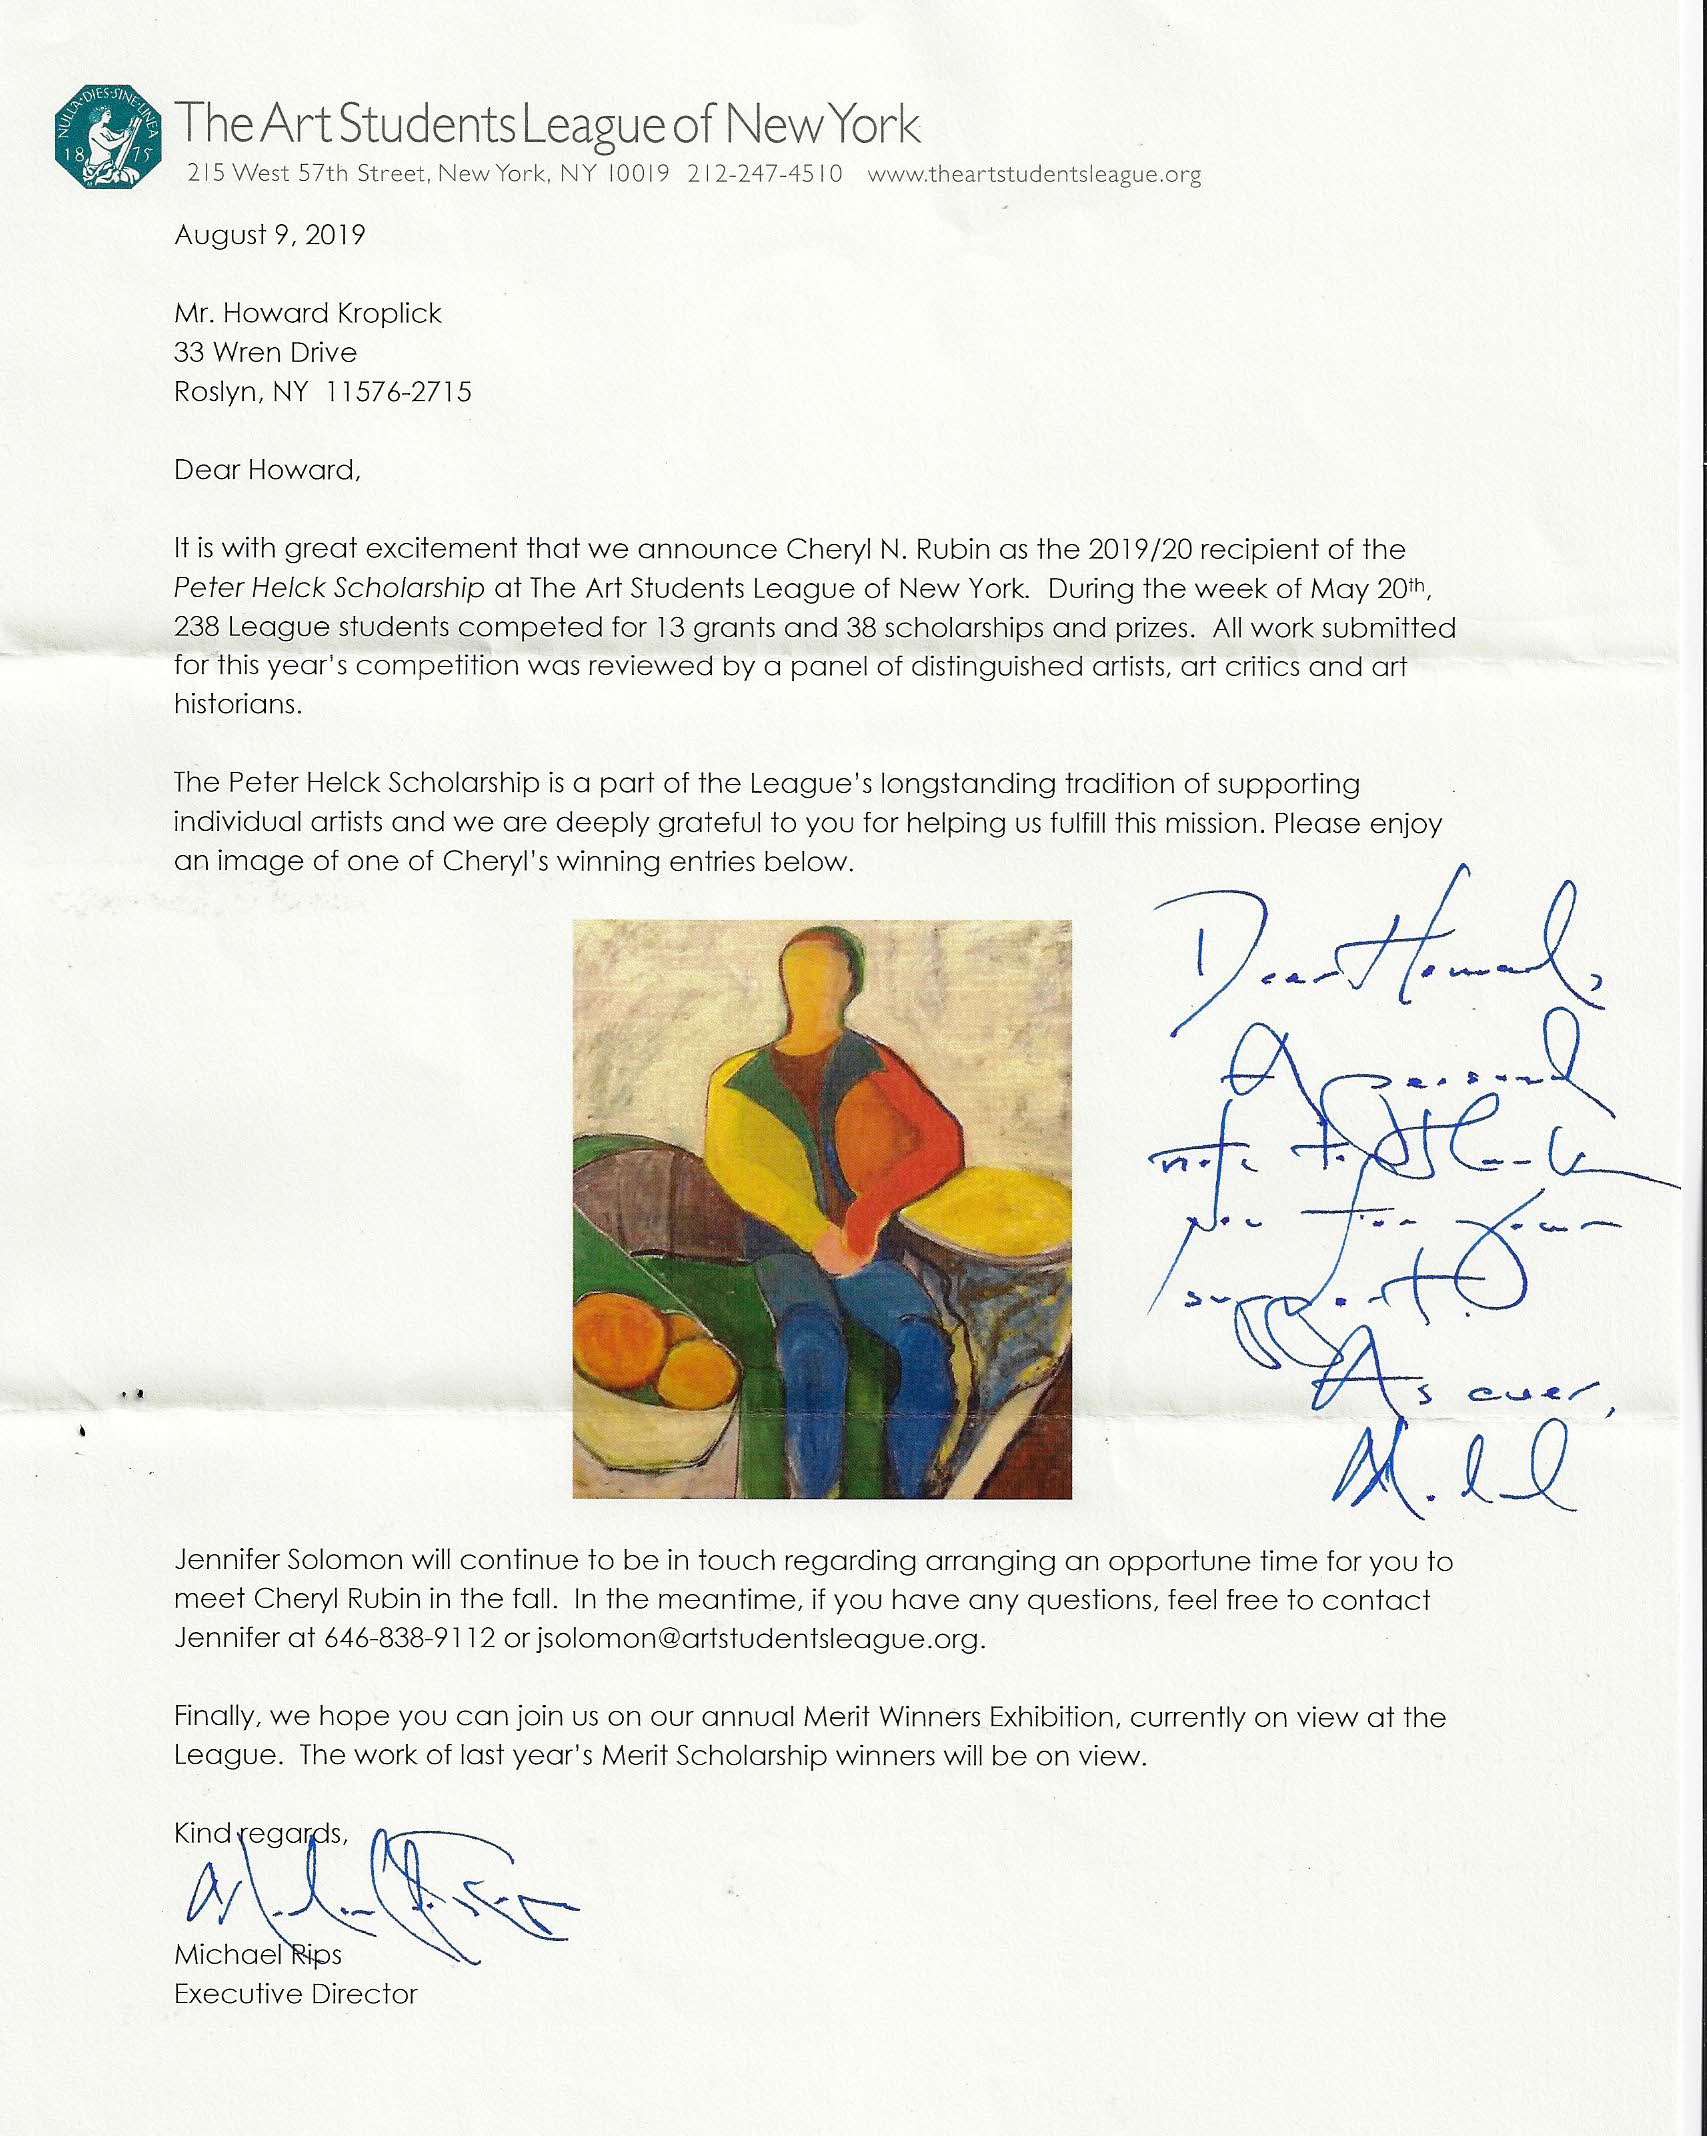 NULLA·DIES·SINE·LINEA
1875
The Art Students League of New York
215 West 57th Street, New York, NY 10019 212-247-4510 www.theartstudentsleague.org
August 9, 2019
Mr. Howard Kroplick
33 Wren Drive
Roslyn, NY 11576-2715
Dear Howard,
It is with great excitement that we announce Cheryl N. Rubin as the 2019/20 recipient of the
Peter Helck Scholarship at The Art Students League of New York. During the week of May 20th,
238 League students competed for 13 grants and 38 scholarships and prizes. All work submitted
for this year's competition was reviewed by a panel of distinguished artists, art critics and art
historians.
The Peter Helck Scholarship is a part of the League's longstanding tradition of supporting
individual artists and we are deeply grateful to you for helping us fulfill this mission. Please enjoy
an image of one of Cheryl's winning entries below.
Dear Howard,
A personal
note to thank
you for your
support!
As ever,
Michael
Jennifer Solomon will continue to be in touch regarding arranging an opportune time for you to
meet Cheryl Rubin in the fall. In the meantime, if you have any questions, feel free to contact
Jennifer at 646-838-9112 or jsolomon@artstudentsleague.org.
Finally, we hope you can join us on our annual Merit Winners Exhibition, currently on view at the
League. The work of last year's Merit Scholarship winners will be on view.
Kind regards,
Michael Rips
Executive Director